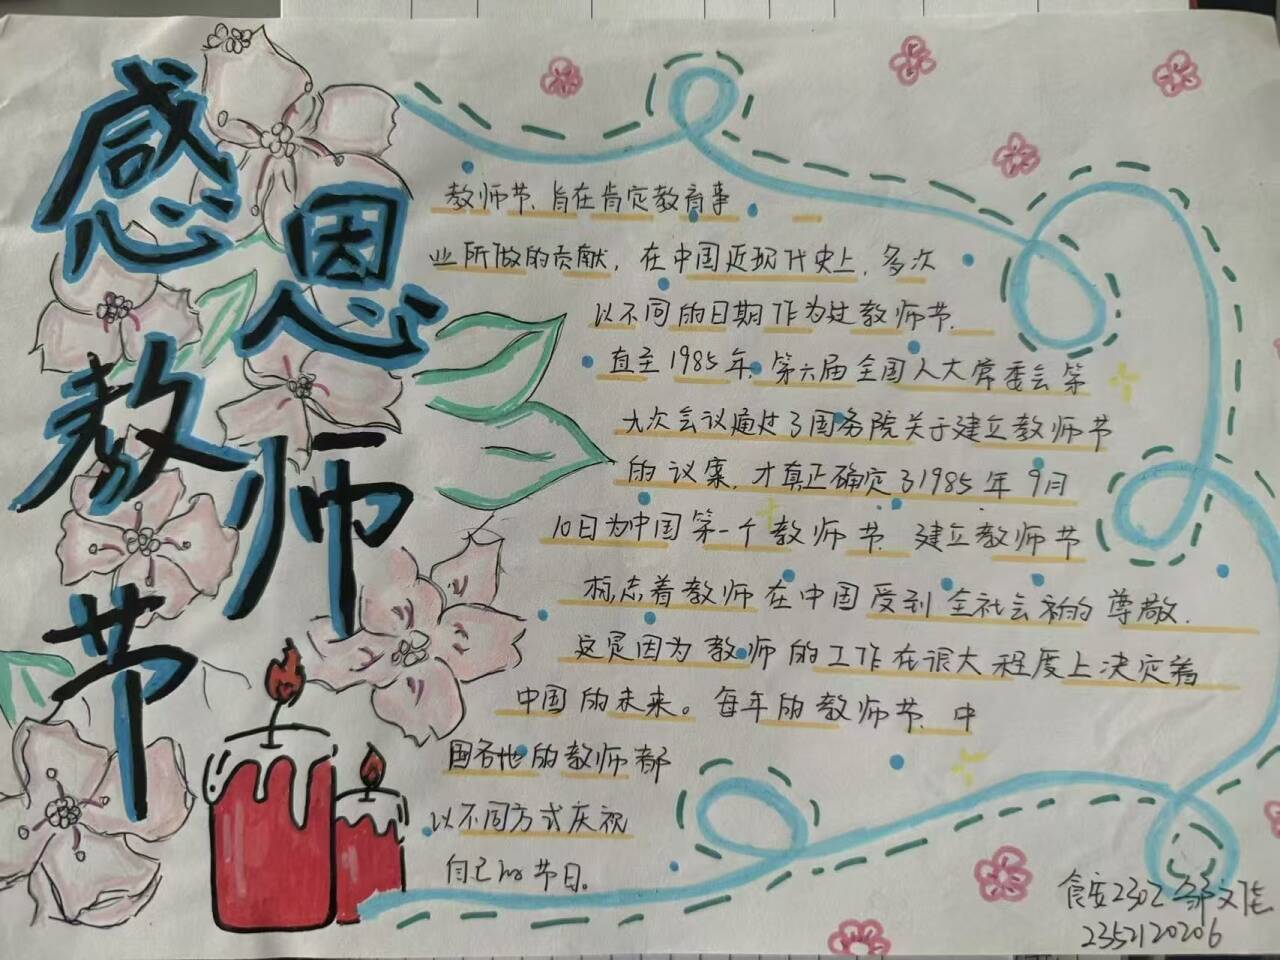 感恩教师节
教师节,旨在肯定教育事
业所做的贡献,在中国近现代史上,多次
以不同的日期作为过教师节.
直至1985年,第六届全国人大常委会第
九次会议通过了国务院关于建立教师节
的议案,才真正确定了1985年9月
10日为中国第一个教师节.建立教师节
标志着教师在中国受到全社会的尊敬.
这是因为教师的工作在很大程度上决定着
中国的未来。每年的教师节,中
国各地的教师都
以不同方式庆祝
自己的节日。
食安2302 邹文
2352120206